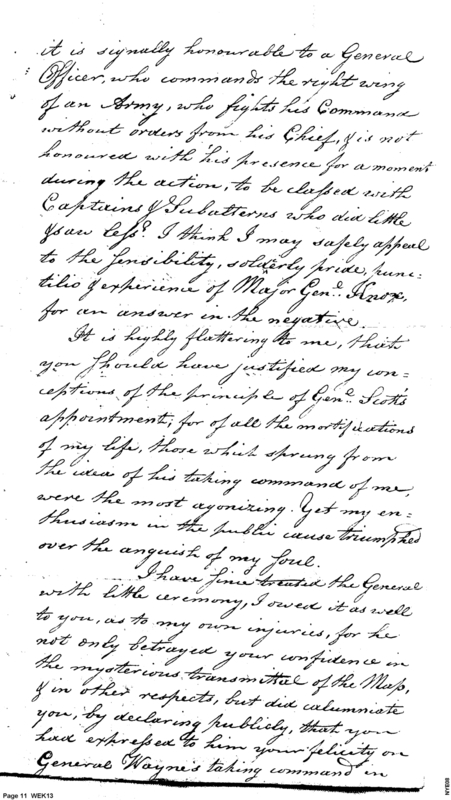 it is signally honourable to a General
Officer, who commands the right wing
of an Army, who fights his Command
without orders from his Chief, & is not
honoured with his presence for a moment
during the action, to be classed with
Captains & Subalterns who did little
& saw less? I think I may safely appeal
to the sensibility, soldierly pride, punc=
tilio & experience of Major Genl. Knox,
for an answer in the negative.
It is highly flattering to me, that
you should have justified my con=
ceptions of the principle of Genl. Scott's
appointment; for of all the mortifications
of my life, those which sprung from
the idea of his taking command of me,
were the most agonizing. Yet my en=
thusiasm in the public cause triumphed
over the anguish of my soul.
I have since treated the General
with little ceremony, I owed it as well
to you, as to my own injuries, for he
not only betrayed your confidence in
the mysterious transmittal of the Map,
& in other respects, but did calumniate
you, by declaring publicly, that you
had expressed to him your felicity on
General Wayne's taking command in
Page 11 WEK13
NYE08